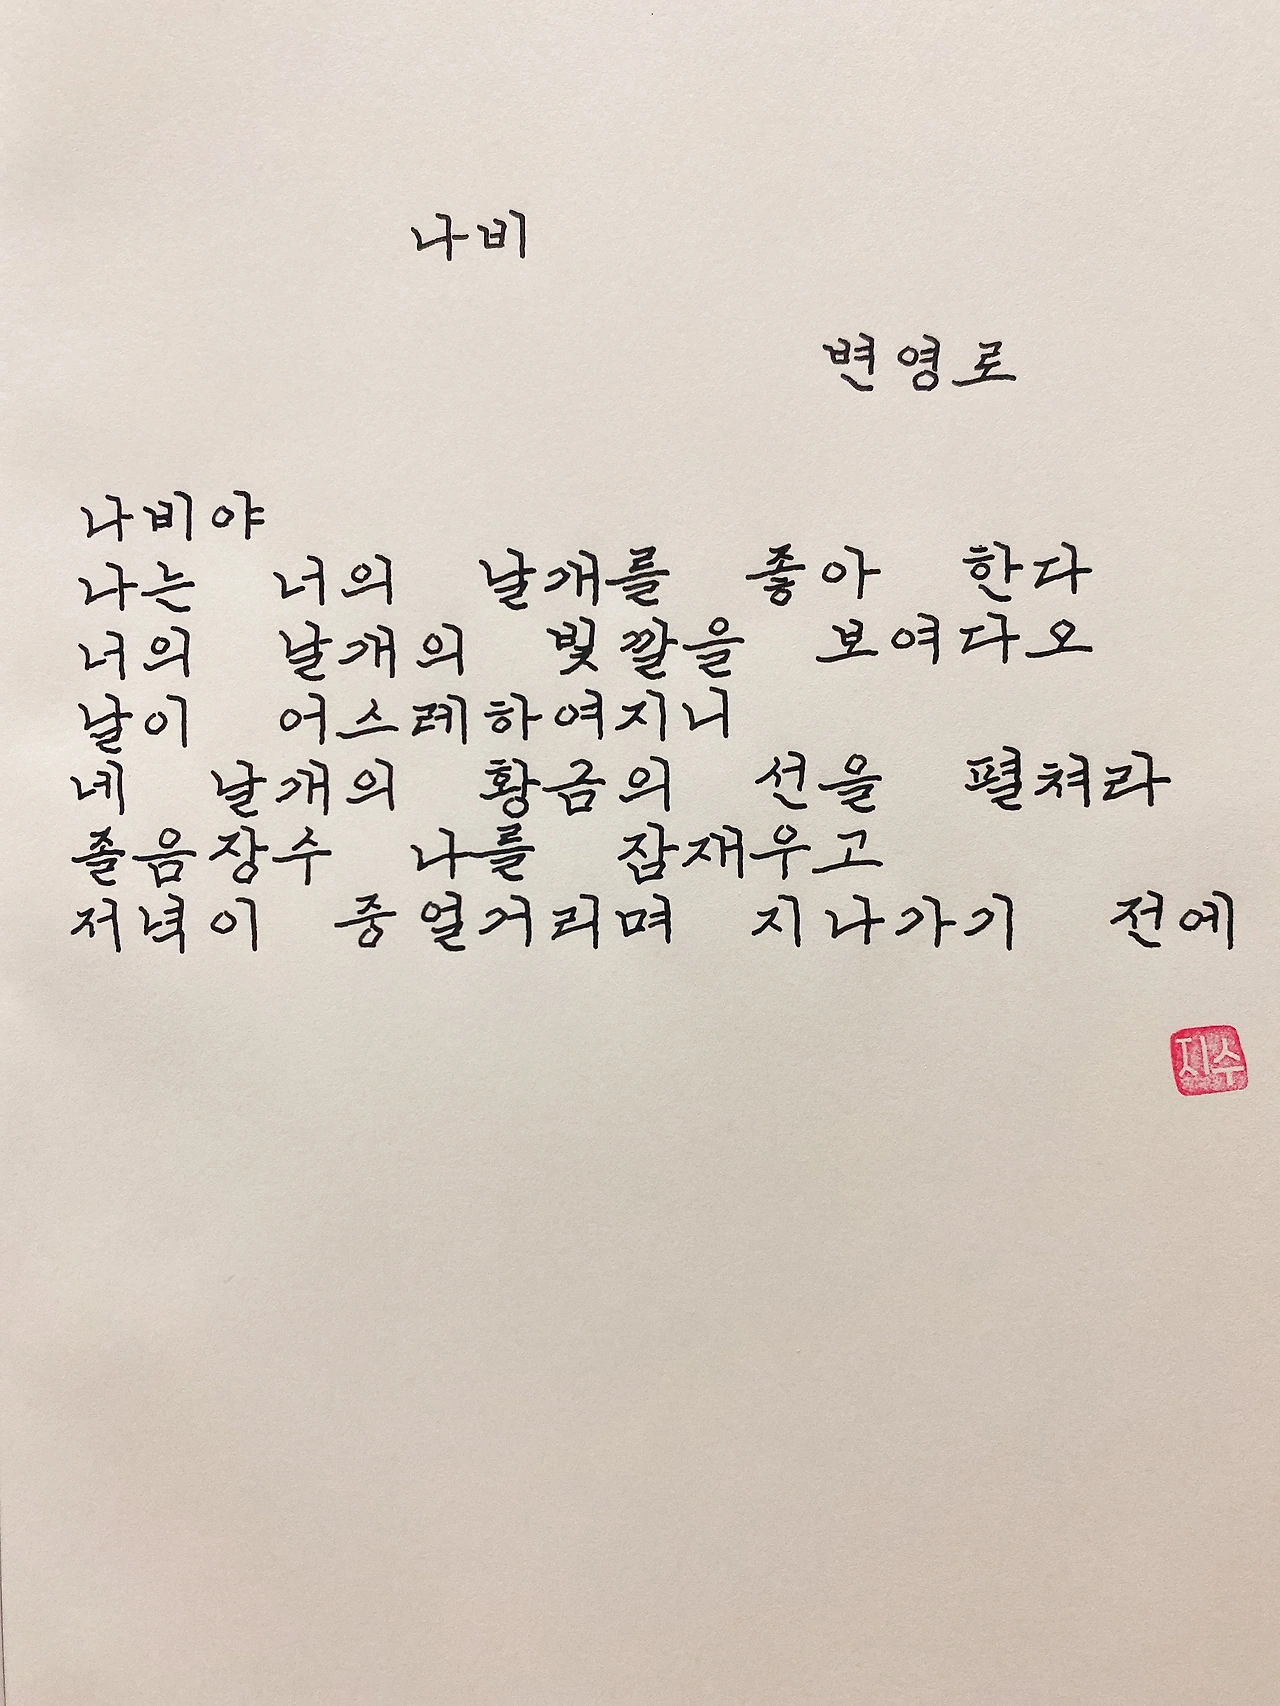 나비
변영로
나비야
나는 너의 날개를 좋아 한다
너의 날개의 빛깔을 보여다오
날이 어스레하여지니
네 날개의 황금의 선을 펼쳐라
졸음장수 나를 잠재우고
저녁이 중얼거리며 지나가기 전에
지수